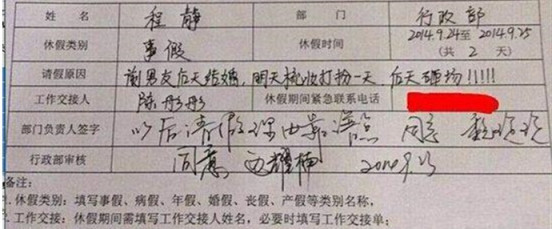 姓 名 程静 部 门 行政部
休假类别 事假 休假时间 2014.9.24至2014.9.25
(共 2 天)
请假原因 前男友后天结婚,明天梳妆打扮一天 后天砸场!!!!!
工作交接人 陈彤彤 休假期间紧急联系电话
部门负责人签字 以后请假理由靠谱点 同意
行政部审核 同意 2014.9.23
备注:
1.休假类别:填写事假、病假、年假、婚假、丧假、产假等类别名称,
2.工作交接:休假期间需填写工作交接人姓名,必要时填写工作交接单;